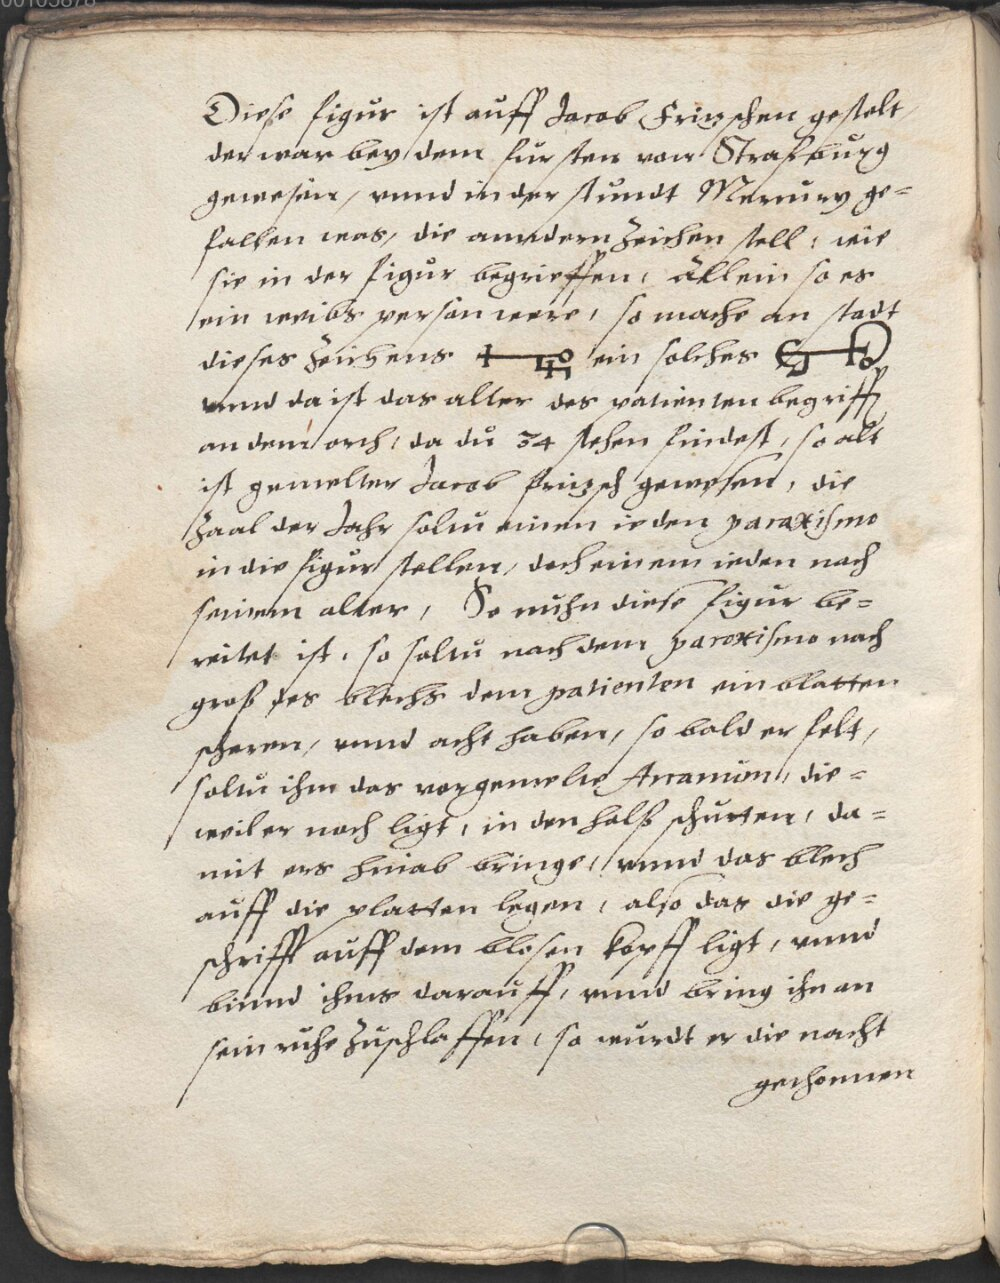 00105878
Diese figur ist auff Jacob Fritzschen gestelt
der war bey dem fursten von Straßburg
gewesen, vnnd in der stundt Mercury ge=
fallen was, die anndern Zeichen stell, wie
sie in der figur begrieffen, Allein so es
ein weibs person were, so mache an stadt
dieses Zeichens ein solches
vnnd da ist das alter des patienten begriff
an dem orch, da du 34 stehen findest, so alt
ist gemelter Jacob fritzsch gewesen, die
Zaal der Jahr soltu einen ieden paraxismo
in die figur stellen, doch einem ieden nach
seinem alter, So nuhn diese figur be=
reitet ist, so soltu nach dem paroxismo nach
groß des blechs dem patienten ein blatten
scheren, vnnd acht haben, so bald er felt,
soltu ihm das vorgemelte Arcanum, die=
weil er noch ligt, in den halß schutten, da=
mit ers hinab bringe, vnnd das blech
auff die platten legen, also das die ge=
schrifft auff dem blosen kopff ligt, vnnd
binnd ihms darauff, vnnd bring ihn an
sein ruhe Zuschlaffen, so wurdt er die nacht